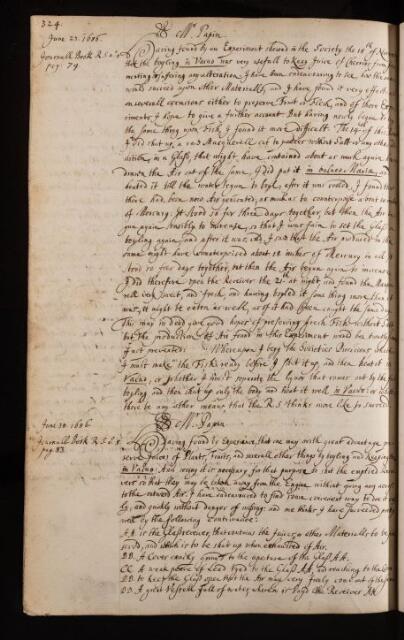 324.
By Mr. Papin
June 23. 1686.
Journall Book R.S.
pag. 74
Having found by an Experiment shewed in the Society the 10th of
that the boyling in Vacuo was very usefull to keep Juice of Cherries from
or suffering any alteration, I have been endeavouring to see how the same
would succeed upon other Materialls, and I have found it very effectuall
on severall occasions either to preserve Fruit or Flesh, and of these Exper-
iments I hope to give a further account. But having newly begun to try
the same thing upon Fish, I found it more difficult. The 14 of this
I did shut up a Mackrell cut to peeces without Salt or any other ad-
dition, in a Glass, that might have contained about as much again
drawn the Air out of the same, I did put it in balneo Mariæ, and
heated it till the water began to boyl, after it was cooled, I found that
there had been new Air generated, as much as to counterpoise about
of Mercury. It stood so for three days together, but then the Air be-
gun again sensibly to increase, so that I was fain to set the Glass
boyling again, and after it was cold, I saw that the Air produced in the
same might have counterpoised about 18 inches of Mercury in all
stood so few days together, but then the Air began again to increase
I did therefore open the Receiver the 21th at night, and found the
very sweet, and fresh, and having boyled it some thing more than it
was, it might be eaten as well, as if it had been caught the same day
This may in deed give good hopes of preserving fresh Fish without Salt
but the production of Air found in this Experiment would be
if not prevented: Whereupon I beg the Societies Directions whether
I must make the Fish ready before I shut it up, and then heat it in
Vacuo, or whether I must separate the liquor that comes out by the first
boyling and then shut up only the body and heat it well in Vacuo; or whether
there be any other means that the R.S. thinks more like to succeed
By Mr. Papin
June 30. 1686
Journall Book R.S.
pag. 83.
Having found by Experience that one may with great advantage pre-
serve Juices of Plants, Fruits, and severall other things by boyling and keeping them
in Vacuo. And seeing it is necessary for that purpose so that the emptied Recei-
vers so that they may be taken away from the Engine without giving any access
to the outward Air. I have endeavoured to find some convenient way to doe it ea-
sily, and quickly without danger of missing: and me thinks I have succeeded pretty
well by the following Contrivance:
AA is the Glass receiver, that contains the Juices or other Materialls to be pre-
served, and which is to be shut up when exhausted of Air.
BB. A Cover exactly fitted to the aperture of the Glass AA.
CC. A weak peece of Lead tyed to the Glass AA, and reaching to the Cover
BB. to keep the Glass open that the Air may very freely come out of the same
DD. A great Vessell full of water, wherein is put the Receiver AA.